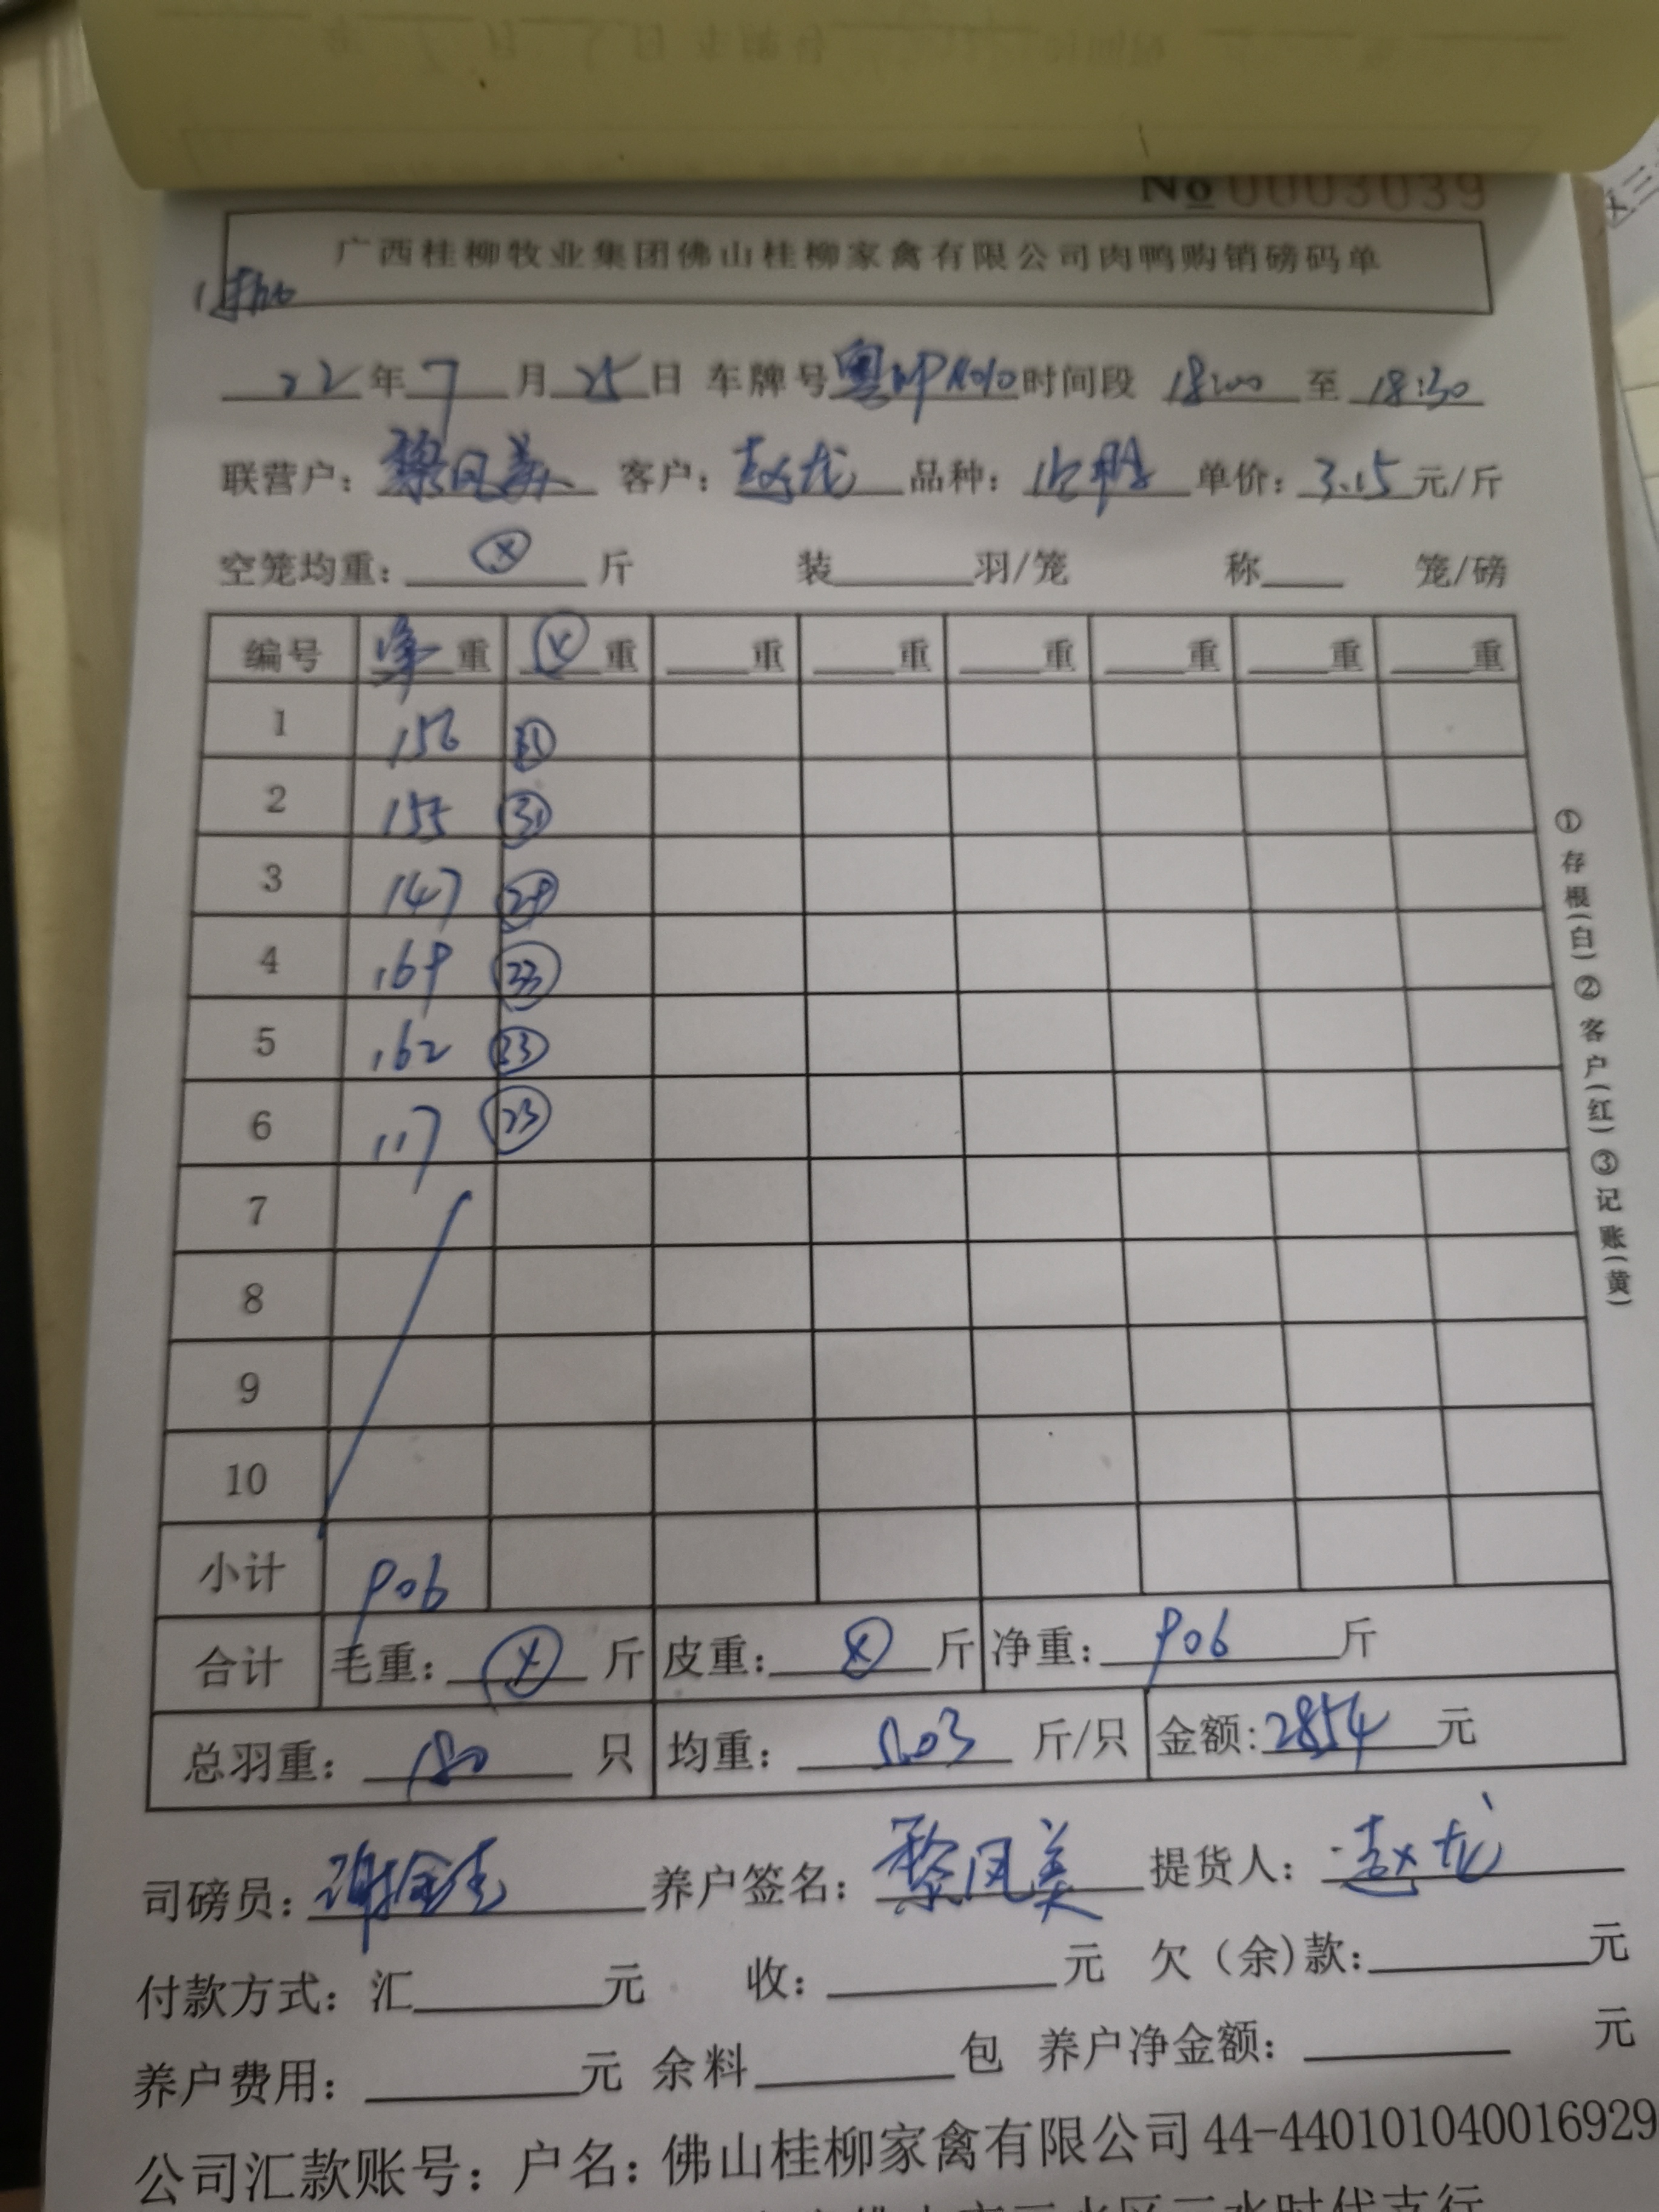 No 0003039
广西桂柳牧业集团佛山桂柳家禽有限公司肉鸭购销磅码单
22年7月25日 车牌号粤 时间段 18:00 至 18:30
联营户：黎凤美 客户：赵龙 品种： 单价：3.15元/斤
空笼均重：ⓧ斤 装 羽/笼 称 笼/磅
编号 净重 ⓧ重 重 重 重 重 重 重
1 156 31
2 155 31
3 147 29
4 169 33
5 162 33
6 117 23
7
8
9
10
小计 906
合计 毛重：ⓧ斤 皮重：ⓧ斤 净重：906斤
总羽重：180只 均重：5.03斤/只 金额:2854元
司磅员： 养户签名：黎凤美 提货人：赵龙
付款方式：汇 元 收： 元 欠（余)款： 元
养户费用： 元 余料 包 养户净金额： 元
公司汇款账号：户名：佛山桂柳家禽有限公司 44-440101040016929
三水时代支行
①存根(白)②客户(红)③记账(黄)